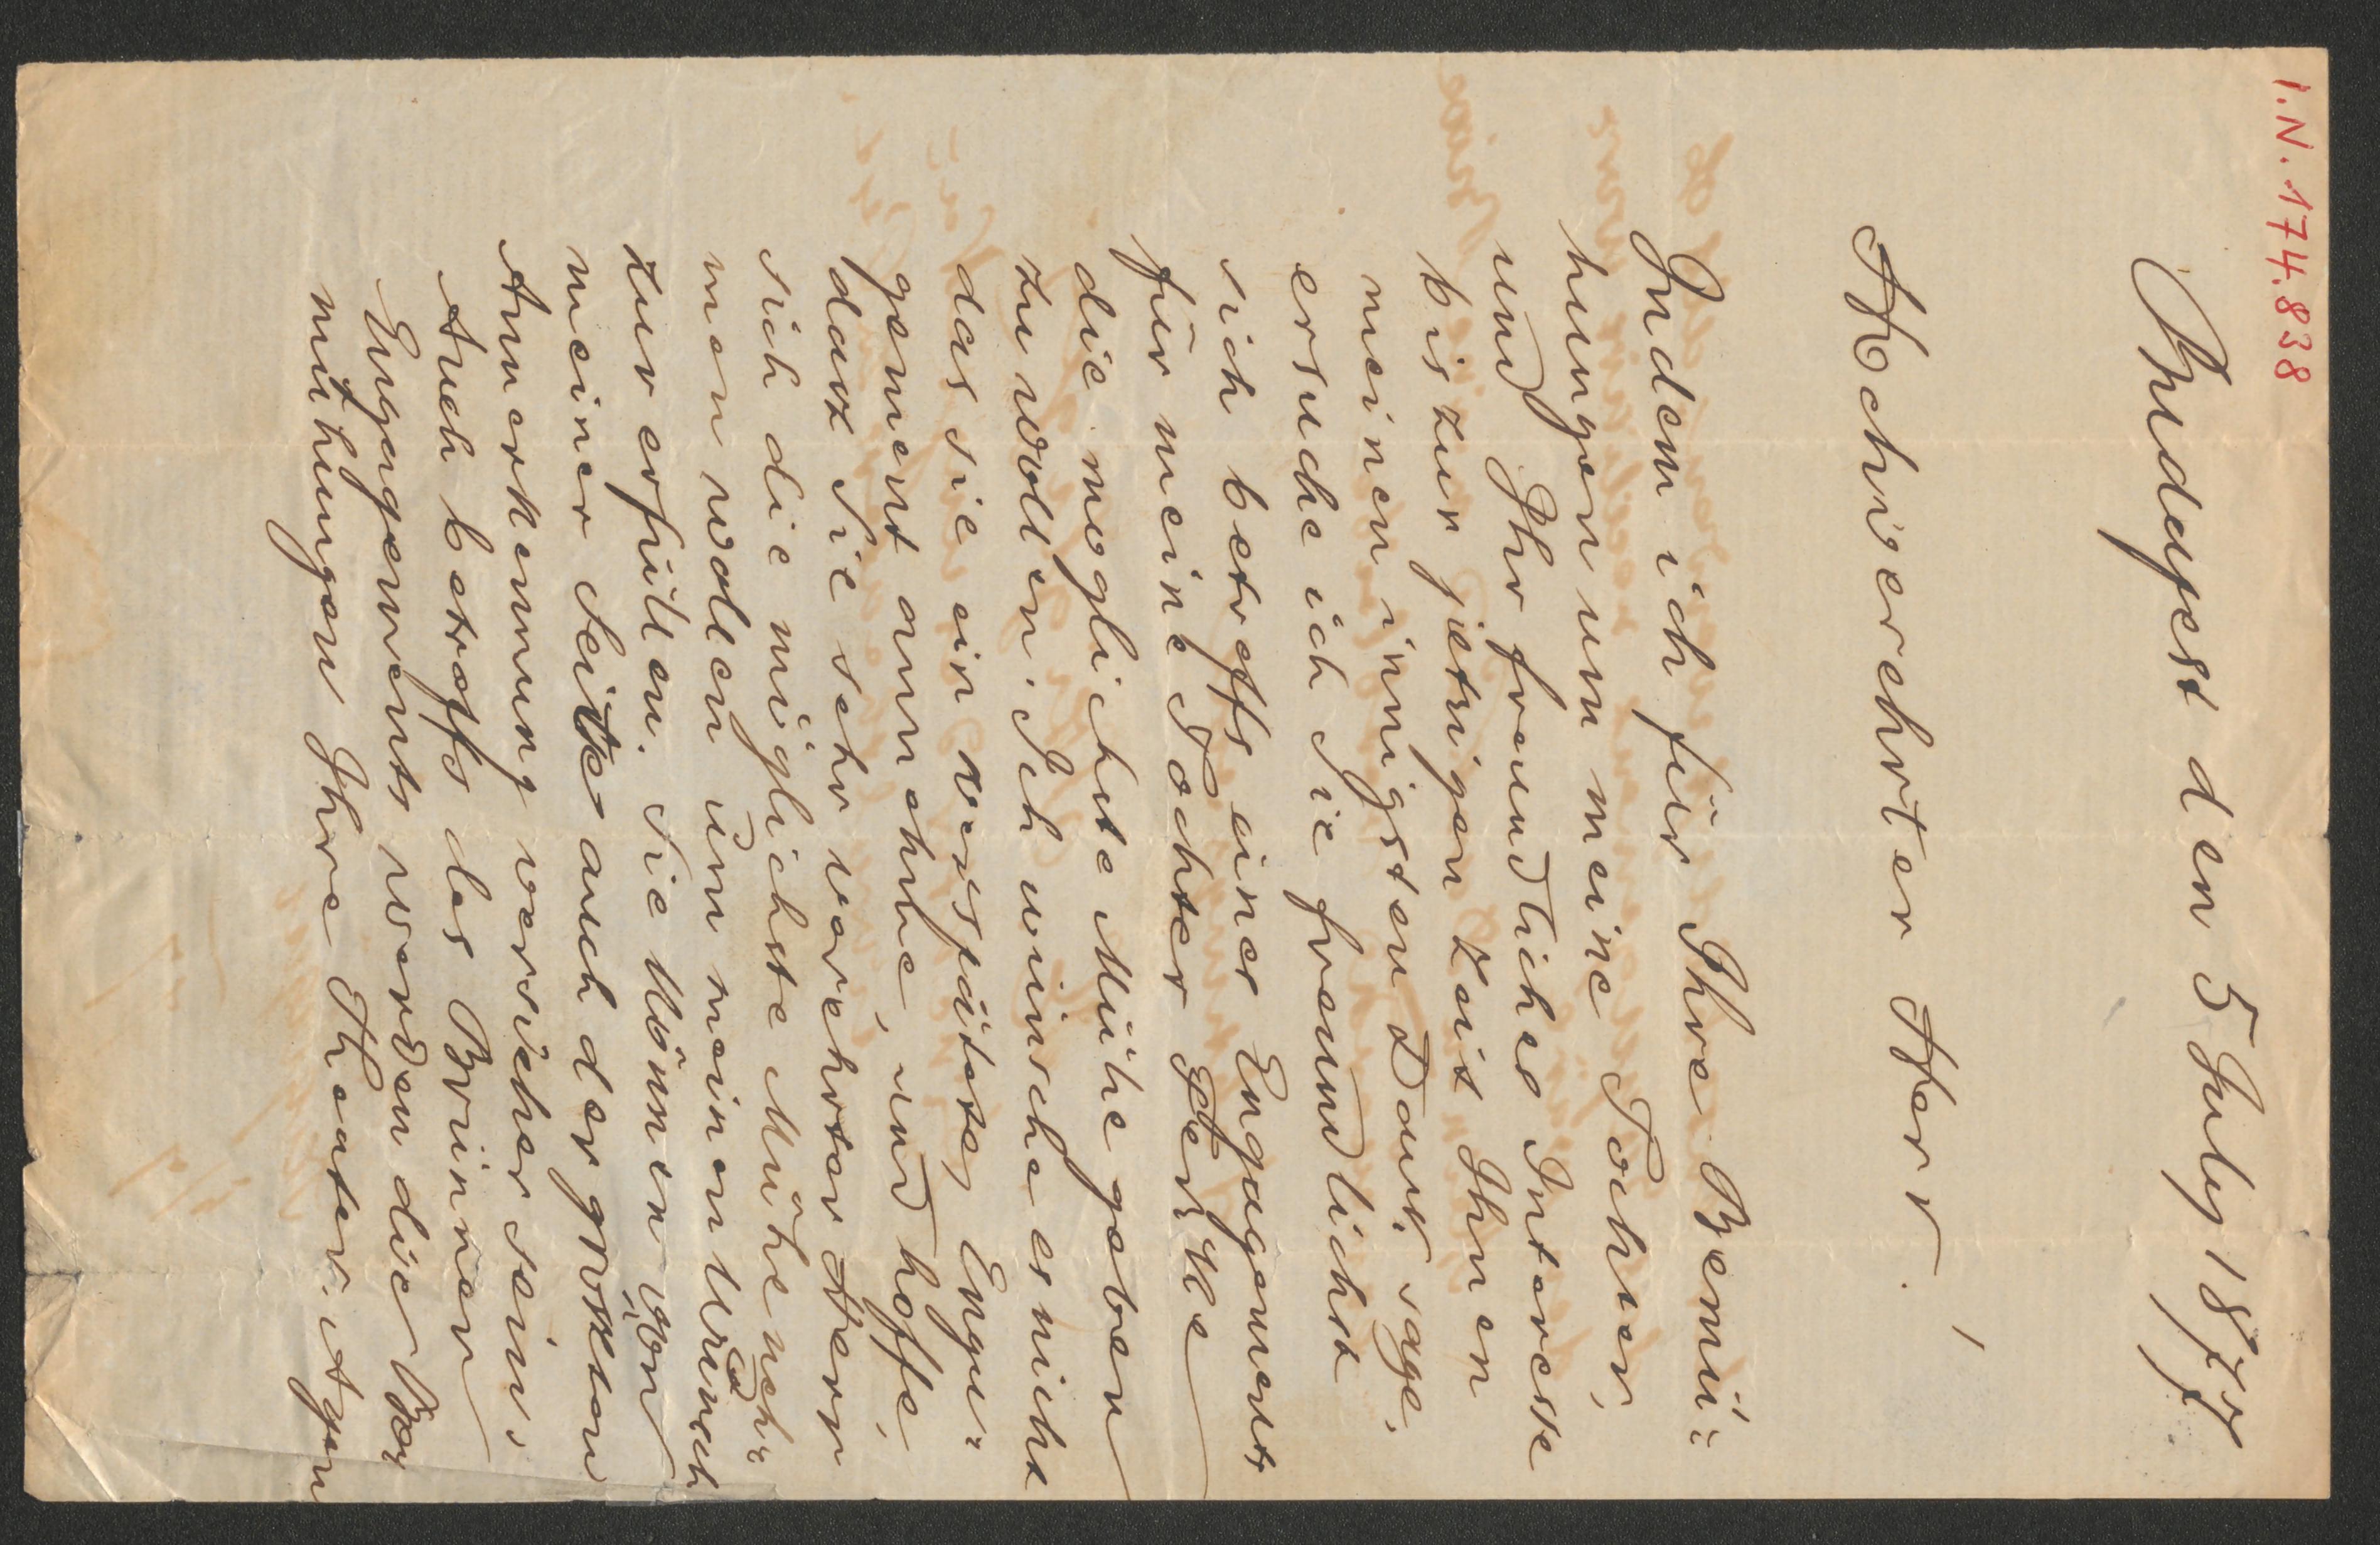 I.N. 174.838
Budapest den 5 July 1877
Hochverehrter Herr!
Indem ich für Ihre Bemü=
hungen um meine Tochter,
und Ihr freundliches Interesse
bis zur jetzigen Zeit Ihnen
meinen innigsten Dank sage,
ersuche ich Sie freundlichst
sich betreffs eines Engagements
für meine Tochter
die moglichste Mühe geben
zu wollen. Ich wünsche es nicht
das sie ein Engu=
gement annehme, und hoffe,
dasz Sie sehr verehrter Herr
sich die möglichste Mühe neh=
men wollen um meinen Wunsch
zur erfüllen. Sie können von
meiner Seite auch der grossten
Annerkennung versichert sein,
Auch betreffs des Brünner
Engagements werden die Be=
mühungen Ihre Theater-Agen